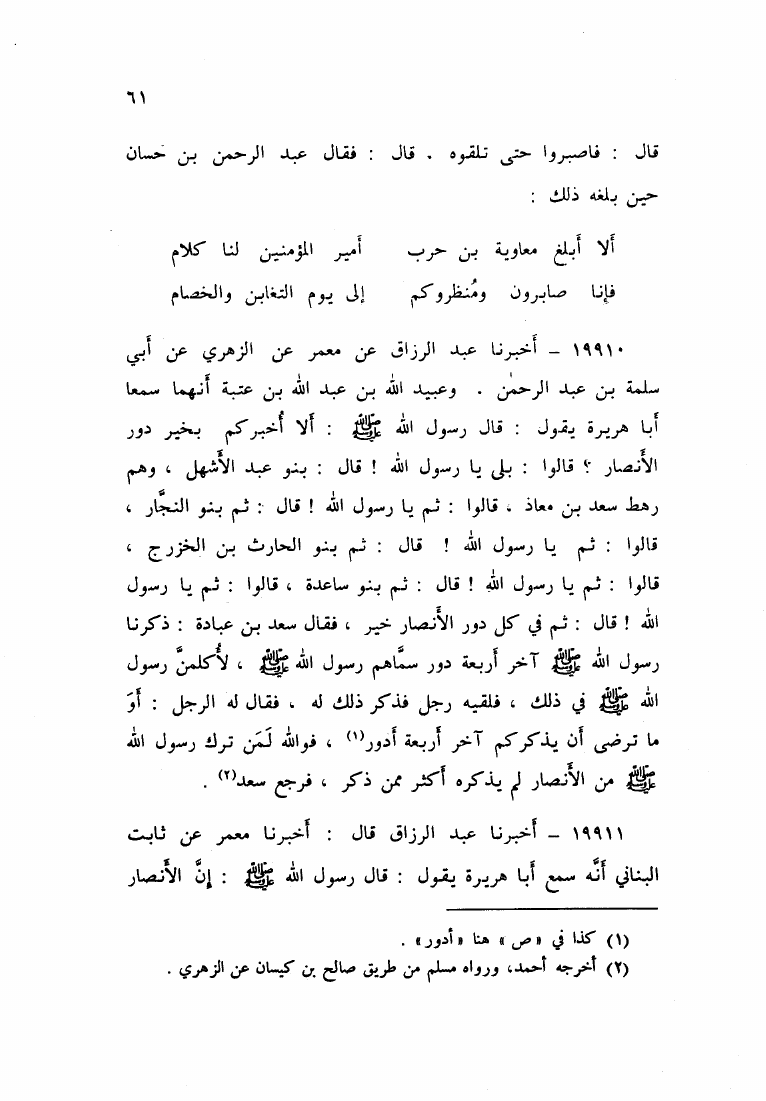 ٦١
قال : فاصبروا حتى تلقوه . قال : فقال عبد الرحمن بن حسان
حين بلغه ذلك :
ألا أبلغ معاوية بن حرب أمير المؤمنين لنا كلام
فإنا صابرون ومُنظروكم إلى يوم التغابن والخصام
١٩٩١٠ – أخبرنا عبد الرزاق عن معمر عن الزهري عن أبي
سلمة بن عبد الرحمٰن . وعبيد الله بن عبد الله بن عتبة أنهما سمعا
أبا هريرة يقول : قال رسول الله ﷺ : ألا أُخبركم بخير دور
الأنصار ؟ قالوا : بلى يا رسول الله ! قال : بنو عبد الأشهل ، وهم
رهط سعد بن معاذ ، قالوا : ثم يا رسول الله ! قال : ثم بنو النجَّار ،
قالوا : ثم يا رسول الله ! قال : ثم بنو الحارث بن الخزرج ،
قالوا : ثم يا رسول الله ! قال : ثم بنو ساعدة ، قالوا : ثم يا رسول
الله ! قال : ثم في كل دور الأنصار خير ، فقال سعد بن عبادة : ذكرنا
رسول الله ﷺ آخر أربعة دور سمَّاهم رسول الله ﷺ ، لأُكلمنَّ رسول
الله ﷺ في ذلك ، فلقيه رجل فذكر ذلك له ، فقال له الرجل : أوَ
ما ترضى أن يذكركم آخر أربعة أدور(١) ، فوالله لَمَن ترك رسول الله
ﷺ من الأنصار لم يذكره أكثر ممن ذكر ، فرجع سعد(٢) .
١٩٩١١ – أخبرنا عبد الرزاق قال : أخبرنا معمر عن ثابت
البناني أنَّه سمع أبا هريرة يقول : قال رسول الله ﷺ : إنَّ الأنصار
(١) كذا في « ص » هنا « أدور » .
(٢) أخرجه أحمد، ورواه مسلم من طريق صالح بن كيسان عن الزهري .